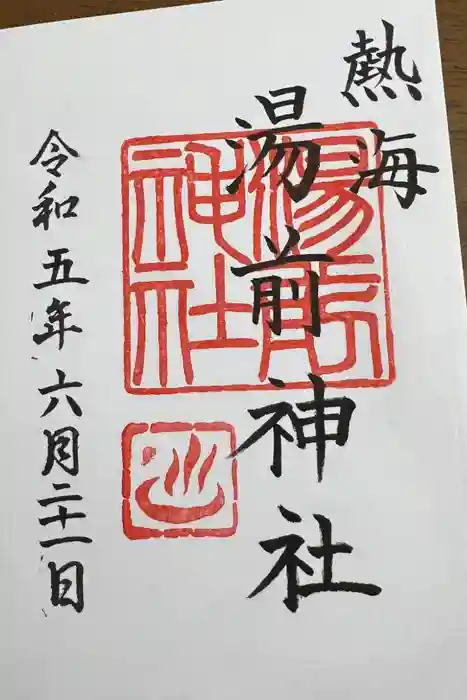 熱海
湯前神社
湯前神社
令和五年六月二十一日